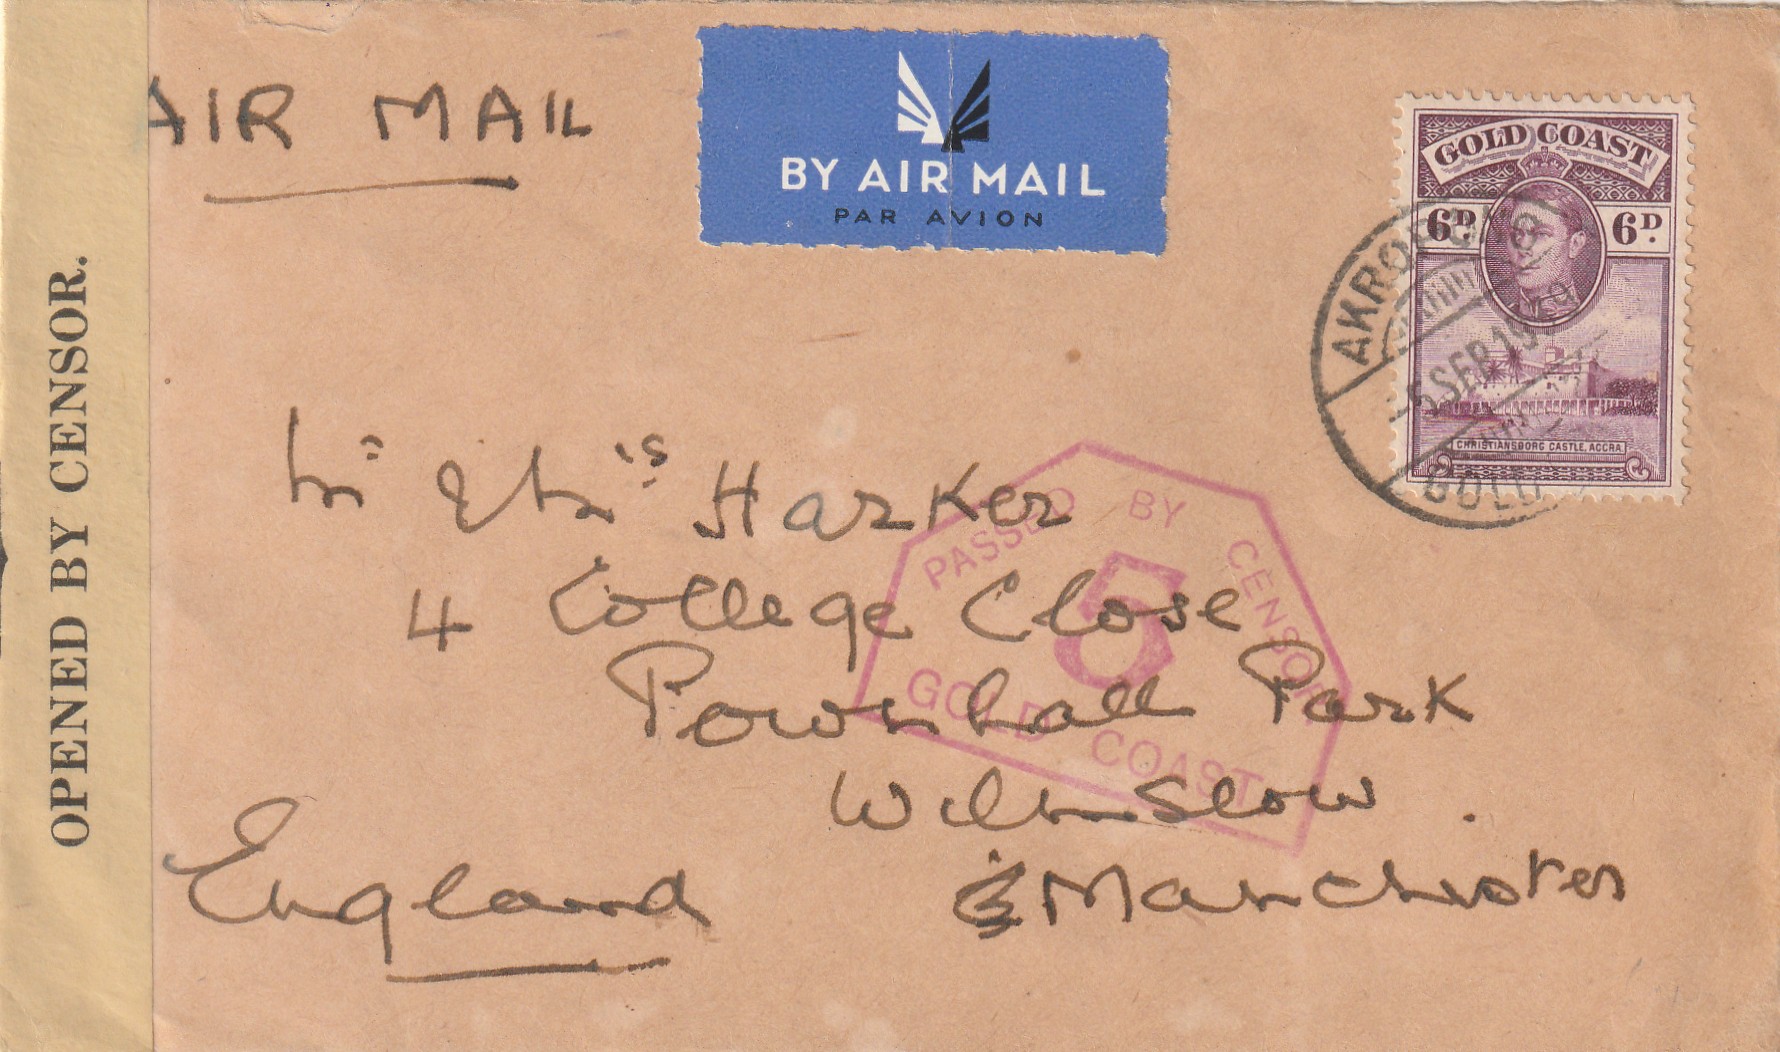 OPENED BY CENSOR.
AIR MAIL
BY AIR MAIL
PAR AVION
GOLD COAST
6D. 6D.
CHRISTIANSBORG CASTLE, ACCRA
5 SEP 19
Mr & Mrs Harker
4 College Close
Pownhall Park
Wilmslow.
Manchester
England
PASSED BY CENSOR
5
GOLD COAST